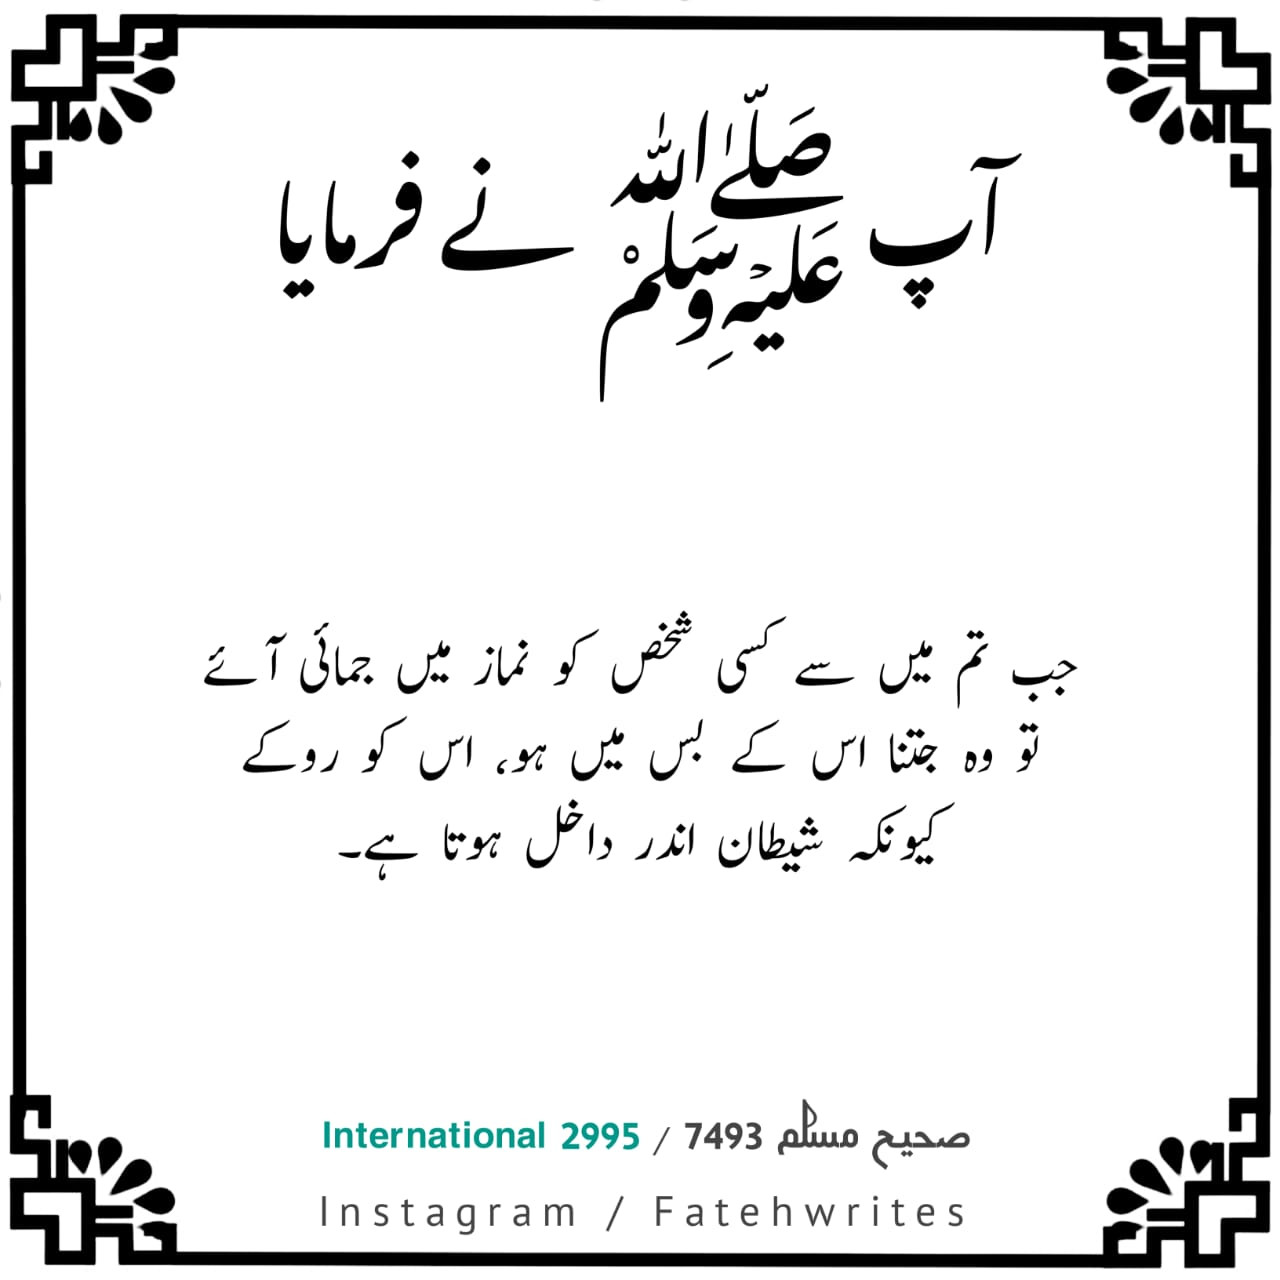 آپ صَلَّے اللہ عَلَیْہِ وَسَلَمْ نے فرمایا
جب تم میں سے کسی شخص کو نماز میں جمائی آئے
تو وہ جتنا اس کے بس میں ہو، اس کو روکے
کیونکہ شیطان اندر داخل ہوتا ہے۔
صحیح مسلم 7493 / International 2995
Instagram / Fatehwrites